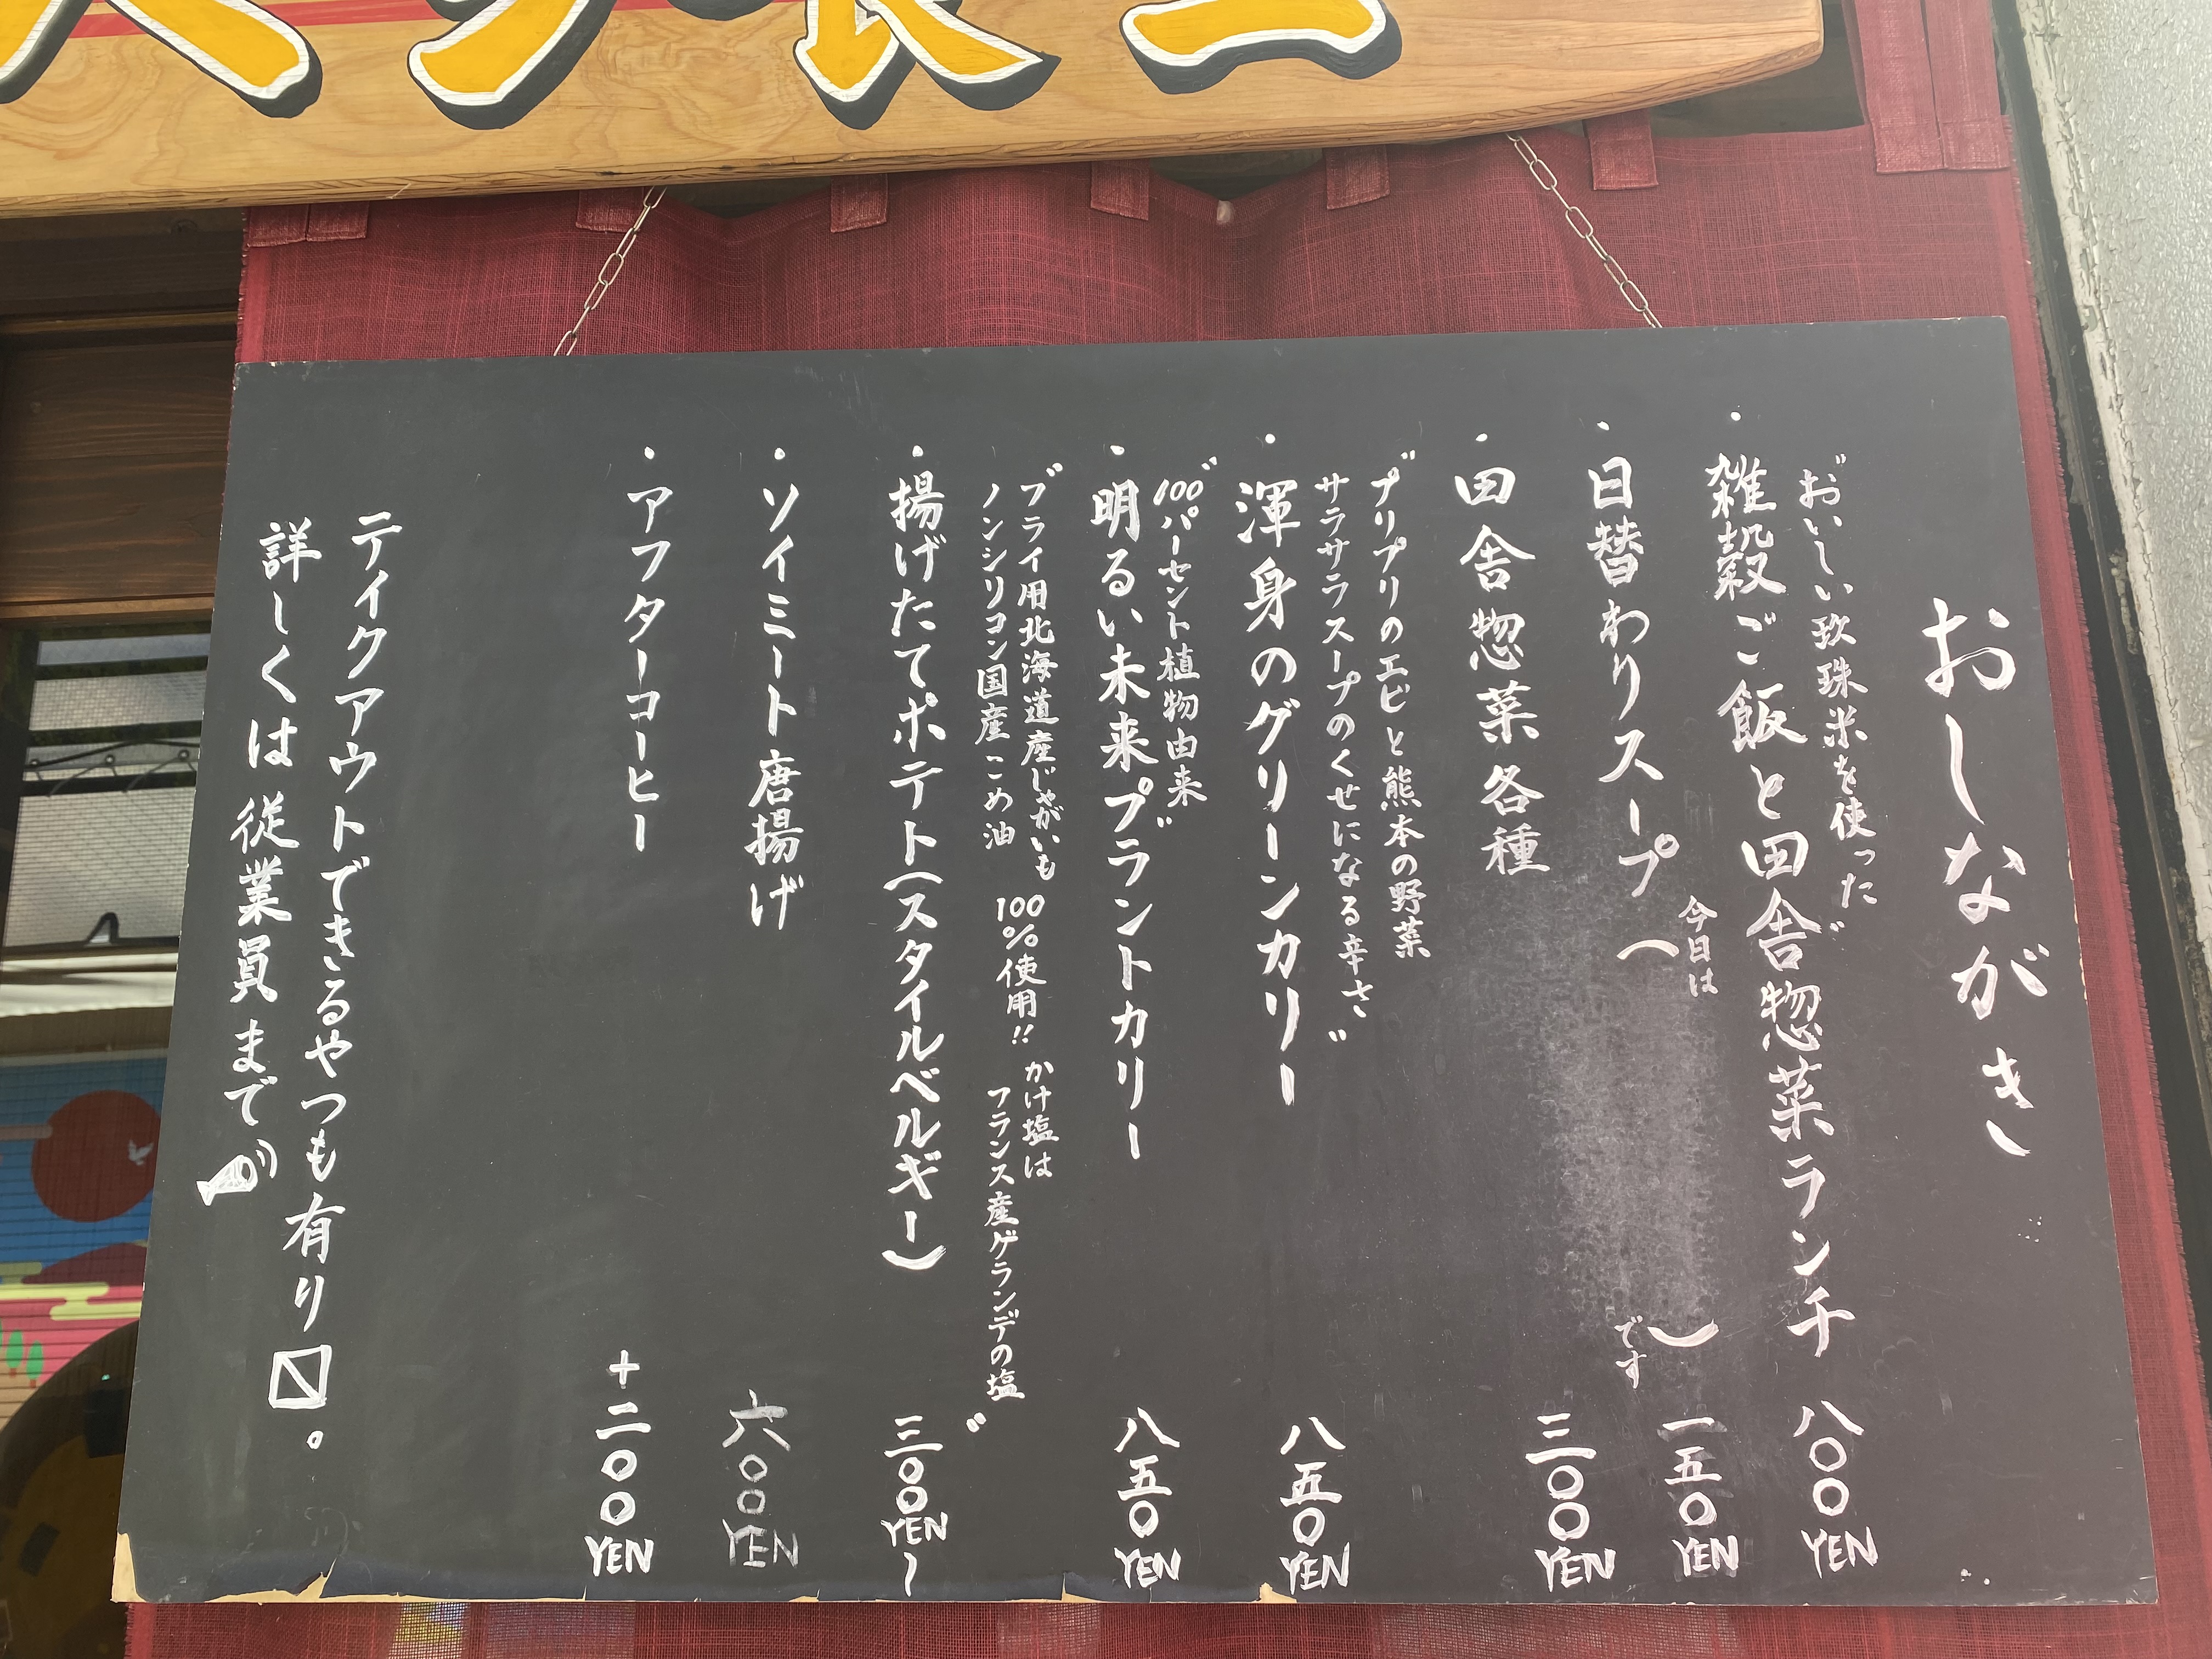 おしながき
"おいしい玖珠米を使った"
・雑穀ご飯と田舎惣菜ランチ 八〇〇YEN
・日替わりスープ（今日は　）です 一五〇YEN
・田舎惣菜各種 三〇〇YEN
"プリプリのエビと熊本の野菜
サラサラスープのくせになる辛さ"
・渾身のグリーンカリー 八五〇YEN
"100パーセント植物由来"
・明るい未来プラントカリー 八五〇YEN
"フライ用北海道産じゃがいも
ノンシリコン国産こめ油
100%使用!!
かけ塩は
フランス産ゲランデの塩"
・揚げたてポテト（スタイルベルギー） 三〇〇YEN〜
・ソイミート唐揚げ 六〇〇YEN
・アフターコーヒー +二〇〇YEN
テイクアウトできるやつも有り〼。
詳しくは従業員まで